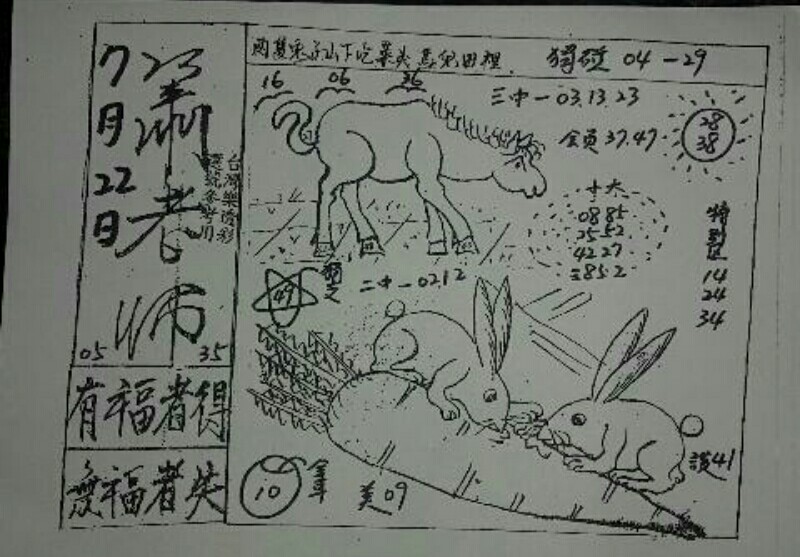 7月22日
蕭老師
台灣樂透彩
選號參考用
05 35
有福者得
無福者失
兩隻兎子山下吃菜头 馬兒田裡
獨碰 04-29
16 06 26
三中一 03.13.23
全員 37.47
28
38
十大
08 85
25 52
42 27
特別区
14
24
34
49
二中一 02 12
10
美09
讚41